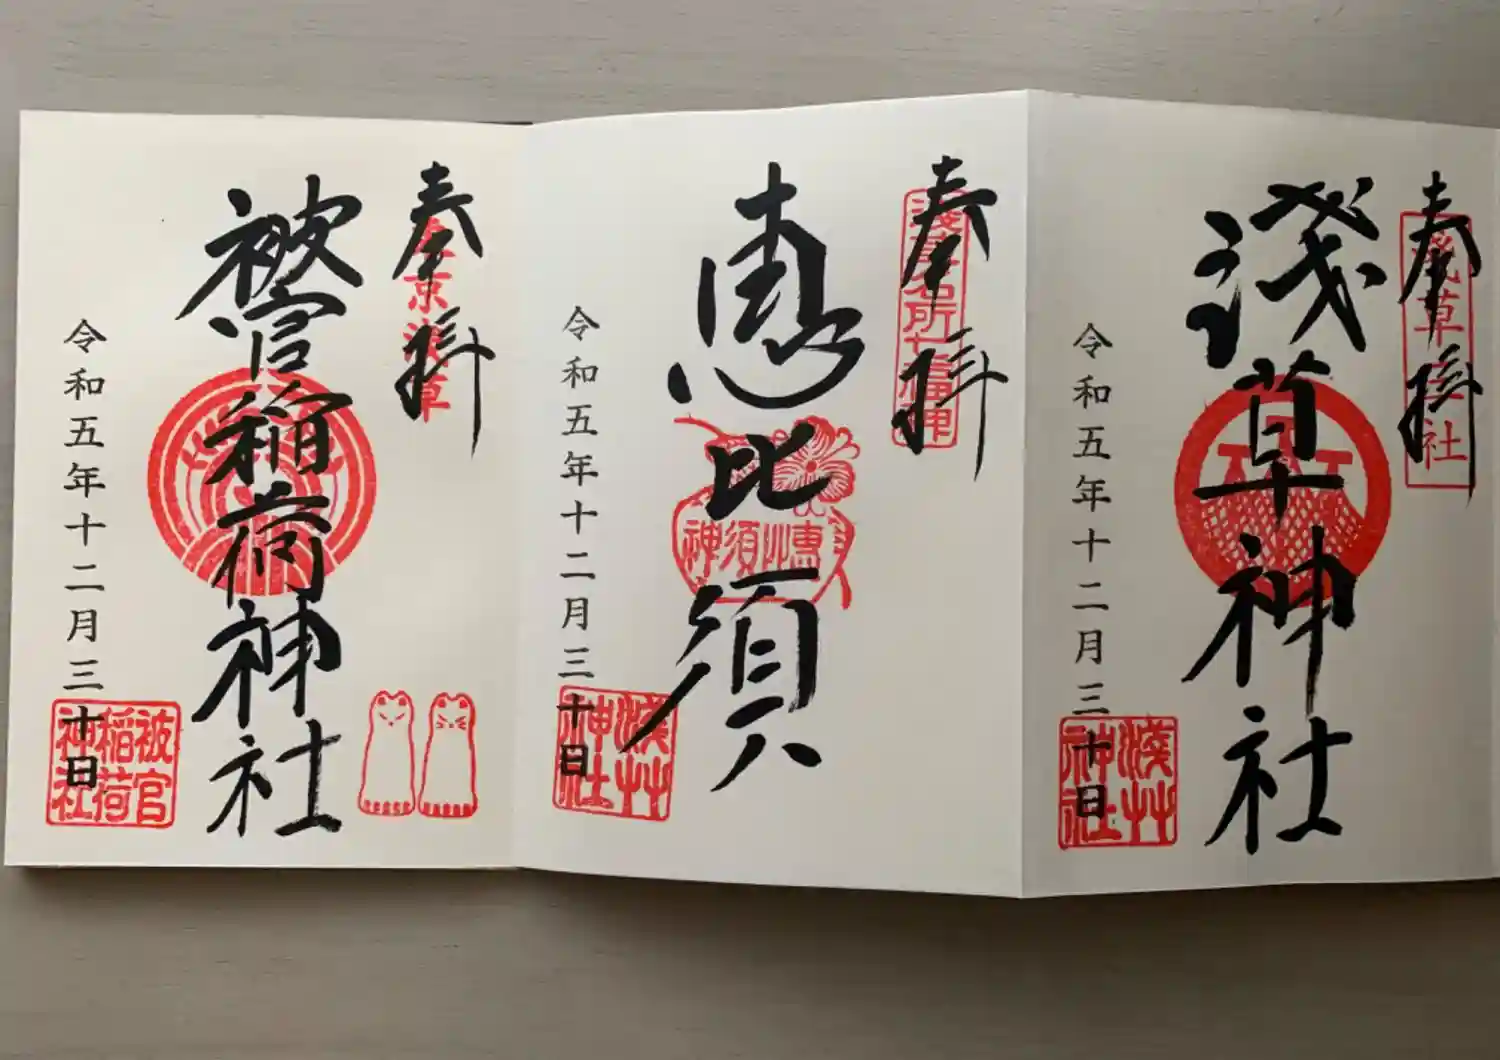 奉拝
淺草神社
淺草神社
令和五年十二月三十日
淺艸神社
奉拝
浅草名所七福神
恵比須
惠比須神
令和五年十二月三十日
淺艸神社
奉拝
東京浅草
被官稲荷神社
令和五年十二月三十日
被官稲荷神社